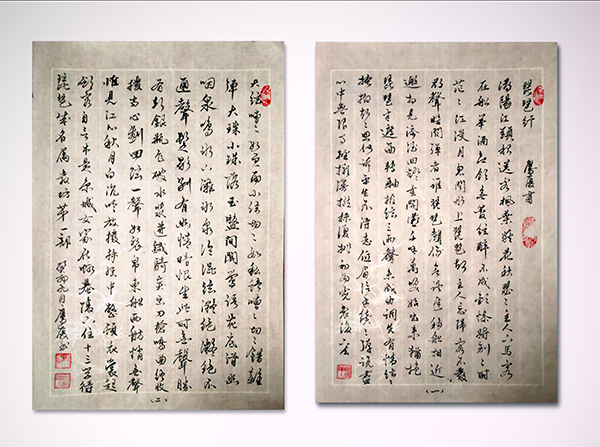 琵琶行
潯陽江頭夜送客楓葉荻花秋瑟瑟主人下馬客
在船舉酒欲飲無管絃醉不成歡慘將別別時
茫茫江浸月忽聞水上琵琶聲主人忘歸客不發
尋聲暗問彈者誰琵琶聲停欲語遲移船相近
邀相見添酒回燈重開宴千呼萬喚始出來猶抱
琵琶半遮面轉軸撥絃三兩聲未成曲調先有情絃絃
掩抑聲聲思似訴平生不得志低眉信手續續彈說盡
心中無限事輕攏慢撚抹復挑初為霓裳後六么
(一)
大絃嘈嘈如急雨小絃切切如私語嘈嘈切切錯雜
彈大珠小珠落玉盤間關鶯語花底滑幽
咽泉鳴水下灘水泉冷澀絃凝絕凝絕不
通聲暫歇別有幽愁暗恨生此時無聲勝
有聲銀瓶乍破水漿迸鐵騎突出刀槍鳴曲終收
撥當心劃四絃一聲如裂帛東船西舫悄無聲
惟見江心秋月白沉吟放撥插絃中整頓衣裳起
斂容自言本是京城女家在蝦蟆陵下住十三學得
琵琶成名屬教坊第一部 九月
(二)